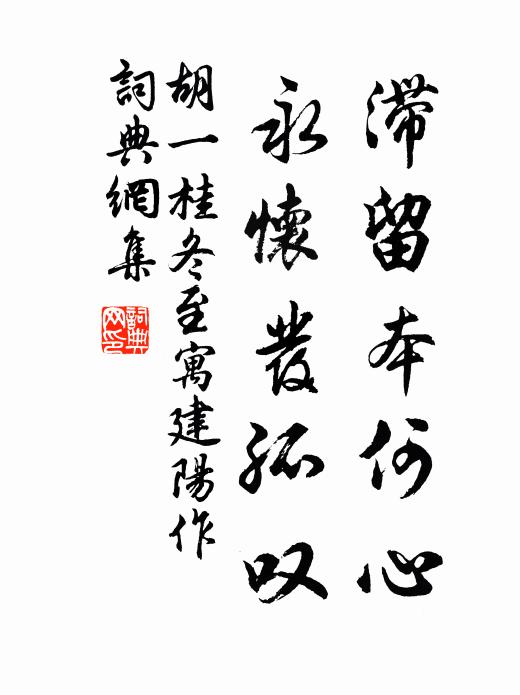 滞留本何心
永懷發孤叹
胡一桂冬至寓建陽作
詞典網集
詞典
网印